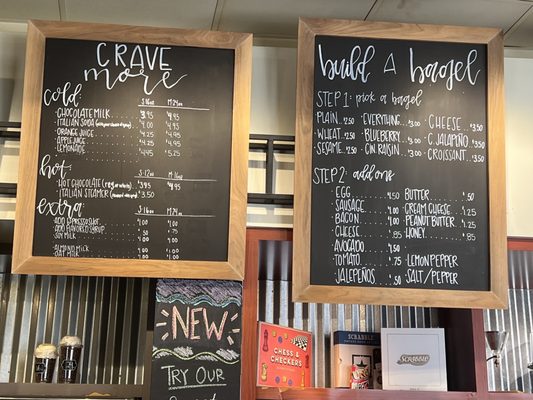 CRAVE
more
cold: S 16oz M 24oz
· CHOCOLATE MILK 3.95 4.95
· ITALIAN SODA 4.00 4.95
· ORANGE JUICE 4.25
· APPLE JUICE 4.25
· LEMONADE 4.45 5.25
hot: S 12oz M 16oz
· HOT CHOCOLATE 3.95 4.95
· ITALIAN STEAMER $3.50
extra: S 16oz M 24oz
· ADD ESPRESSO SHOT
· ADD FLAVORED SYRUP .50 .75
· SOY MILK
· ALMOND MILK 1.00 1.00
· OAT MILK 1.00 1.00
build A bagel
STEP 1: pick a bagel
PLAIN 2.50 · EVERYTHING $3.00 · CHEESE $3.50
WHEAT 2.50 · BLUEBERRY $3.00 · C. JALAPEÑO $3.50
SESAME 2.50 · CIN. RAISIN $3.00 · CROISSANT $3.50
STEP 2: add ons
EGG BUTTER .50
SAUSAGE CREAM CHEESE 1.25
BACON PEANUT BUTTER 1.25
CHEESE .85 HONEY .85
AVOCADO
TOMATO .75 · LEMON PEPPER
JALEPEÑOS .50 · SALT/PEPPER
NEW
TRY OUR
CHESS &
CHECKERS
SCRABBLE
SCRABBLE